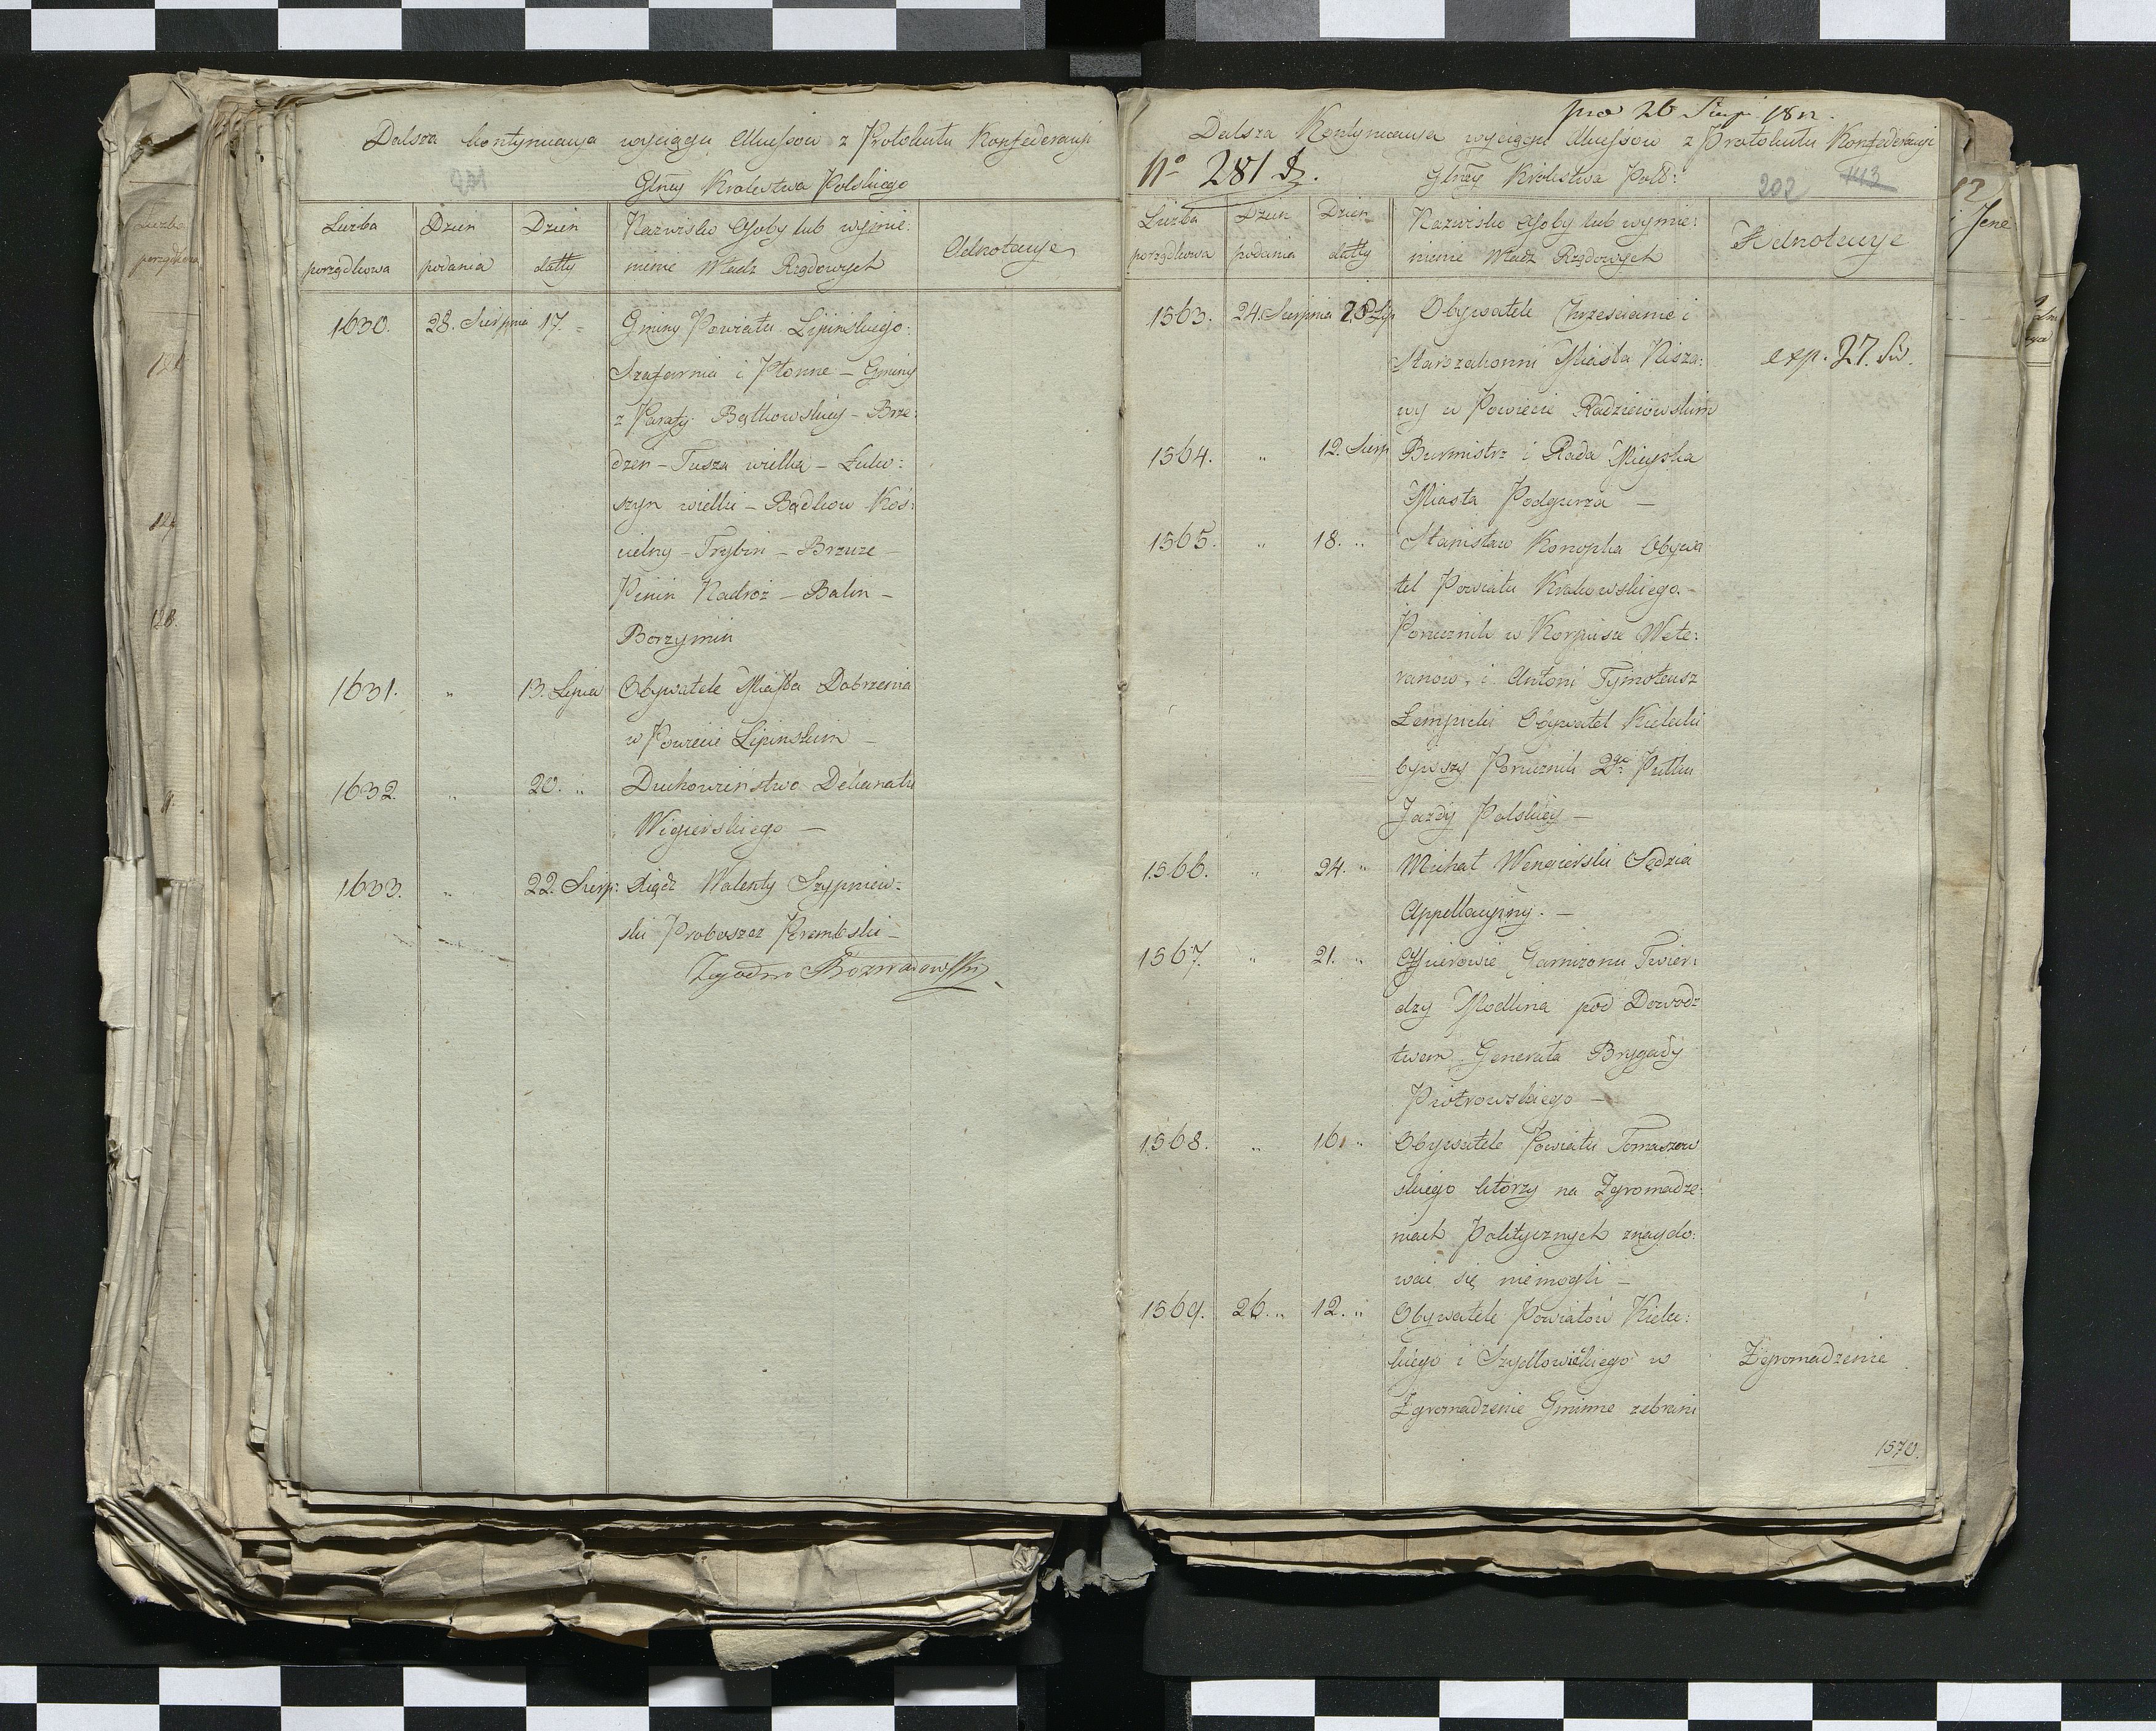 Dalsza kontynuacya wyciągu Akcessow z Protokułu Konfederacyi
Glney Krolestwa Polskiego
Liczba porządkowa
Dzien podania
Dzien datty
Nazwisko Osoby lub wymie:
nienie Władz Rządowych
Adnotacye
1630. 28. Sierpnia 17. Gminy Powiatu Lipinskiego:
Szafarnia i Płonne – Gminy
z Parafy: Bątkowskiey – Brze:
dzen – Tusza wielka – Łuku:
szyn wielki – Bądkow Koś:
cielny – Trąbin – Brzuze –
Pinin Nadróż – Balin –
Borzymin
1631. " 13. Lipca Obywatele Miasta Dobrzenia
w Powiecie Lipinskim –
1632. " 20. " Duchowieństwo Dekanatu
Wigierskiego –
1633. " 22. Sierp: Xiądz Walenty Szypniew:
ski Proboszcz Krembski –
Zgodno Rozwadowski
pro 26 Sierp. 1812.
Dalsza Kontynuacya wyciągu Akcessow z Protokułu Konfederacyi
No 281 Dz.
Glney Krolestwa Pols:
202 143
Liczba porządkowa
Dzien podania
Dzien datty
Nazwisko Osoby lub wymie:
nienie Władz Rządowych
Adnotacye
1563. 24. Sierpnia 28 Lip Obywatele Chrzescianie i
Starozakonni Miasta Nisza:
exp. 27. Sier.
wy w Powiecie Radziejowskim
1564. " 12. Sierp Burmistrz i Rada Mieyska
Miasta Podgurza –
1565. " 18. " Stanisław Konopka Obywa
tel Powiatu Krakowskiego. –
Porucznik w Korpusie Wete:
ranow, i Antoni Tymoteusz
Łempicki Obywatel Kielecki
bywszy Porucznik 2go Pułku
Jazdy Polskiey –
1566. " 24. " Michał Wengierski Sędzia
Appellacyiny. –
1567. " 21. " Officerowie Garnizonu Twier:
dzy Modlina pod Dowodz
twem Generała Brygady
Piotrowskiego –
1568. " 16. " Obywatele Powiatu Tomaszow
skiego ktorzy na Zgromadze:
niach Politycznych znaydo:
wać się niemogli –
1569. 26. " 12. " Obywatele Powiatów Kielec:
kiego i Szydłowieckiego w
Zgromadzenie
Zgromadzenie Gminne zebrani
1570.